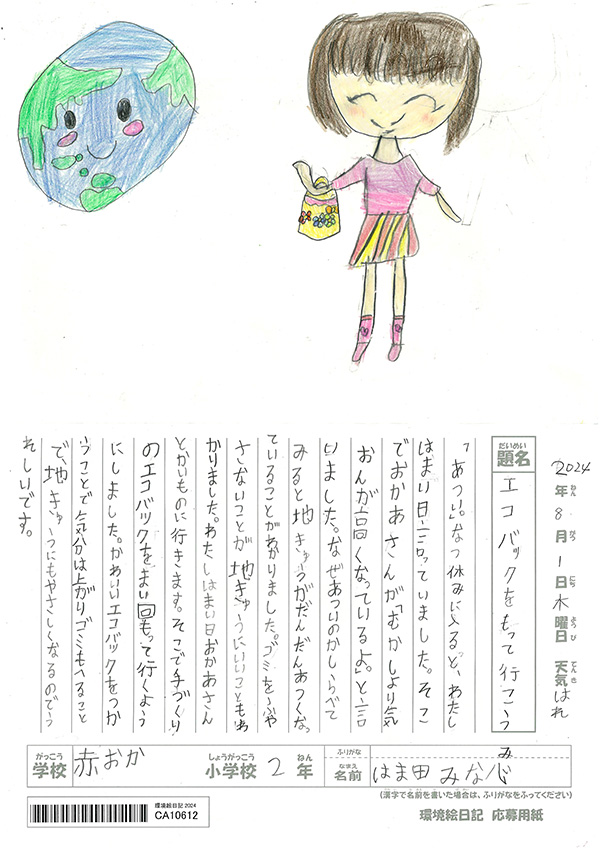 2024年8月1日木曜日 天気はれ
ねん がつ にち ようび てんき
だいめい
題名
エコバックをもって行こう
「あつい。」なつ休みに入ると、わたし
はまい日言っていました。そこ
でおかあさんが「むかしより気
おんが高くなっているよ。」と言
いました。なぜあついのかしらべて
みると地きゅうがだんだんあつくな
ていることがわかりました。ゴミをふや
さないことが地きゅうにいいこともわ
かりました。わたしはまい日おかあさん
とかいものに行きます。そこで手づくり
のエコバックをまい回もって行くよう
にしました。かわいいエコバックをつか
うことで気分は上がりゴミもへること
で、地きゅうにもやさしくなるのでう
れしいです。
がっこう しょうがっこう ねん
学校 赤おか 小学校 2年
ふりがな み
なまえ
名前 はま田 みな心
(漢字で名前を書いた場合は、ふりがなをふってください)
環境絵日記 2024
CA10612
環境絵日記 応募用紙